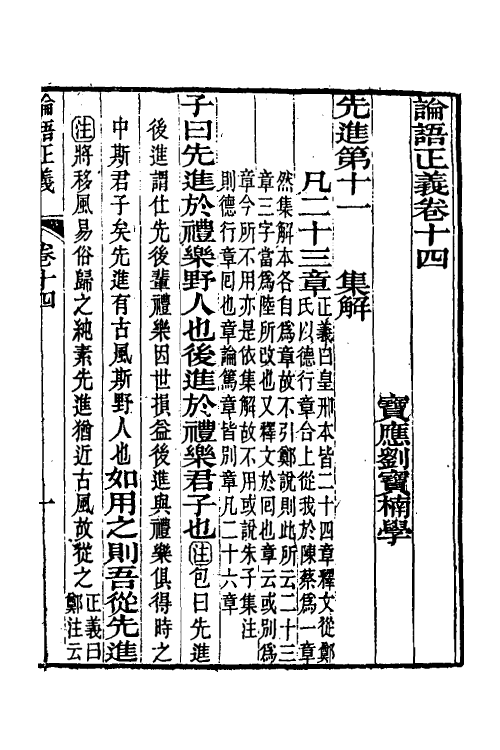 論語正義卷十四
寶應劉寶楠學
先進第十一　集解
凡二十三章
正義曰皇邢本皆二十四章釋文從鄭
氏以德行章合上從我於陳蔡爲一章
然集解本各自爲章故不引鄭說則此所云二十三
章三字當爲陸所改也又釋文於回也章云或別爲
章今所不用亦是依集解故不用或說朱子集注
則德行章回也章論篤章皆別章凡二十六章
子曰先進於禮樂野人也後進於禮樂君子也注包曰先進
後進謂仕先後輩禮樂因世損益後進與禮樂俱得時之
中斯君子矣先進有古風斯野人也如用之則吾從先進
注將移風易俗歸之純素先進猶近古風故從之
正義曰
鄭注云
論語正義　卷十四　一